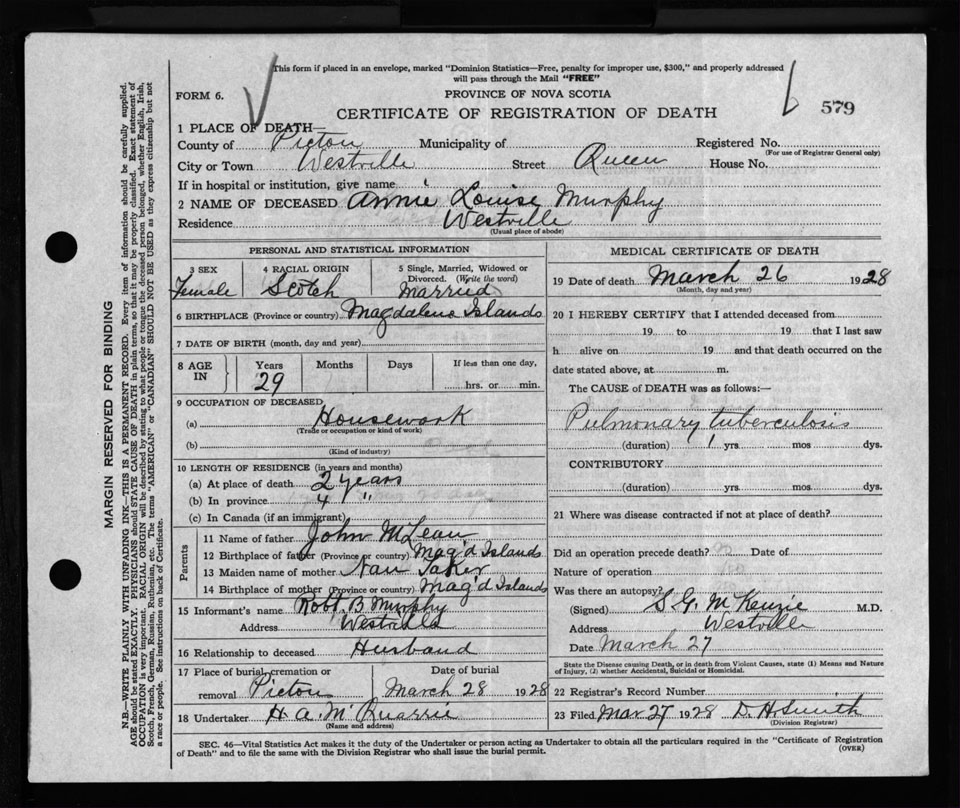 This form if placed in an envelope, marked "Dominion Statistics—Free, penalty for improper use, $300," and properly addressed
will pass through the Mail "FREE"
FORM 6.
PROVINCE OF NOVA SCOTIA
579
CERTIFICATE OF REGISTRATION OF DEATH
1 PLACE OF DEATH—
County of Picton Municipality of Registered No.
(For use of Registrar General only)
City or Town Westville Street Queen House No.
If in hospital or institution, give name
2 NAME OF DECEASED Annie Louise Murphy
Residence Westville
(Usual place of abode)
PERSONAL AND STATISTICAL INFORMATION
3 SEX 4 RACIAL ORIGIN 5 Single, Married, Widowed or
Divorced. (Write the word)
Female Scotch Married
6 BIRTHPLACE (Province or country) Magdalene Islands
7 DATE OF BIRTH (month, day and year)
8 AGE IN Years Months Days If less than one day,
29 hrs. or min.
9 OCCUPATION OF DECEASED
(a) Housework
(Trade or occupation or kind of work)
(b)
(Kind of industry)
10 LENGTH OF RESIDENCE (in years and months)
(a) At place of death 2 years
(b) In province 4 "
(c) In Canada (if an immigrant)
Parents
11 Name of father John McLean
12 Birthplace of father (Province or country) Mag'd Islands
13 Maiden name of mother Nan
14 Birthplace of mother (Province or country) Mag'd Islands
15 Informant's name Robt. B Murphy
Address Westville
16 Relationship to deceased Husband
17 Place of burial, cremation or Date of burial
removal Picton March 28 1928
18 Undertaker H. A. McQuarrie
(Name and address)
MEDICAL CERTIFICATE OF DEATH
19 Date of death March 26 1928
(Month, day and year)
20 I HEREBY CERTIFY that I attended deceased from
19 to 19 that I last saw
h alive on 19 and that death occurred on the
date stated above, at m.
The CAUSE of DEATH was as follows:—
Pulmonary tuberculosis
(duration) 1 yrs mos dys.
CONTRIBUTORY
(duration) yrs. mos dys.
21 Where was disease contracted if not at place of death?
Did an operation precede death? Date of
Nature of operation
Was there an autopsy?
(Signed) S. G. McKenzie M.D.
Address Westville
Date March 27
State the Disease causing Death, or in death from Violent Causes, state (1) Means and Nature
of Injury, (2) whether Accidental, Suicidal or Homicidal.
22 Registrar's Record Number
23 Filed Mar 27 1928 D. H Smith
(Division Registrar)
SEC. 46—Vital Statistics Act makes it the duty of the Undertaker or person acting as Undertaker to obtain all the particulars required in the "Certificate of Registration
of Death" and to file the same with the Division Registrar who shall issue the burial permit.
(OVER)
MARGIN RESERVED FOR BINDING
N.B.—WRITE PLAINLY WITH UNFADING INK—THIS IS A PERMANENT RECORD. Every item of information should be carefully supplied.
AGE should be stated EXACTLY. PHYSICIANS should STATE CAUSE OF DEATH in plain terms, so that it may be properly classified. Exact statement of
OCCUPATION is very important. RACIAL ORIGIN will be described by stating to what people or tongue the deceased person belonged, whether English, Irish,
Scotch, French, German, Russian, Ruthenian, etc. The terms "AMERICAN" or "CANADIAN" SHOULD NOT BE USED as they express citizenship but not
a race or people. See instructions on back of Certificate.